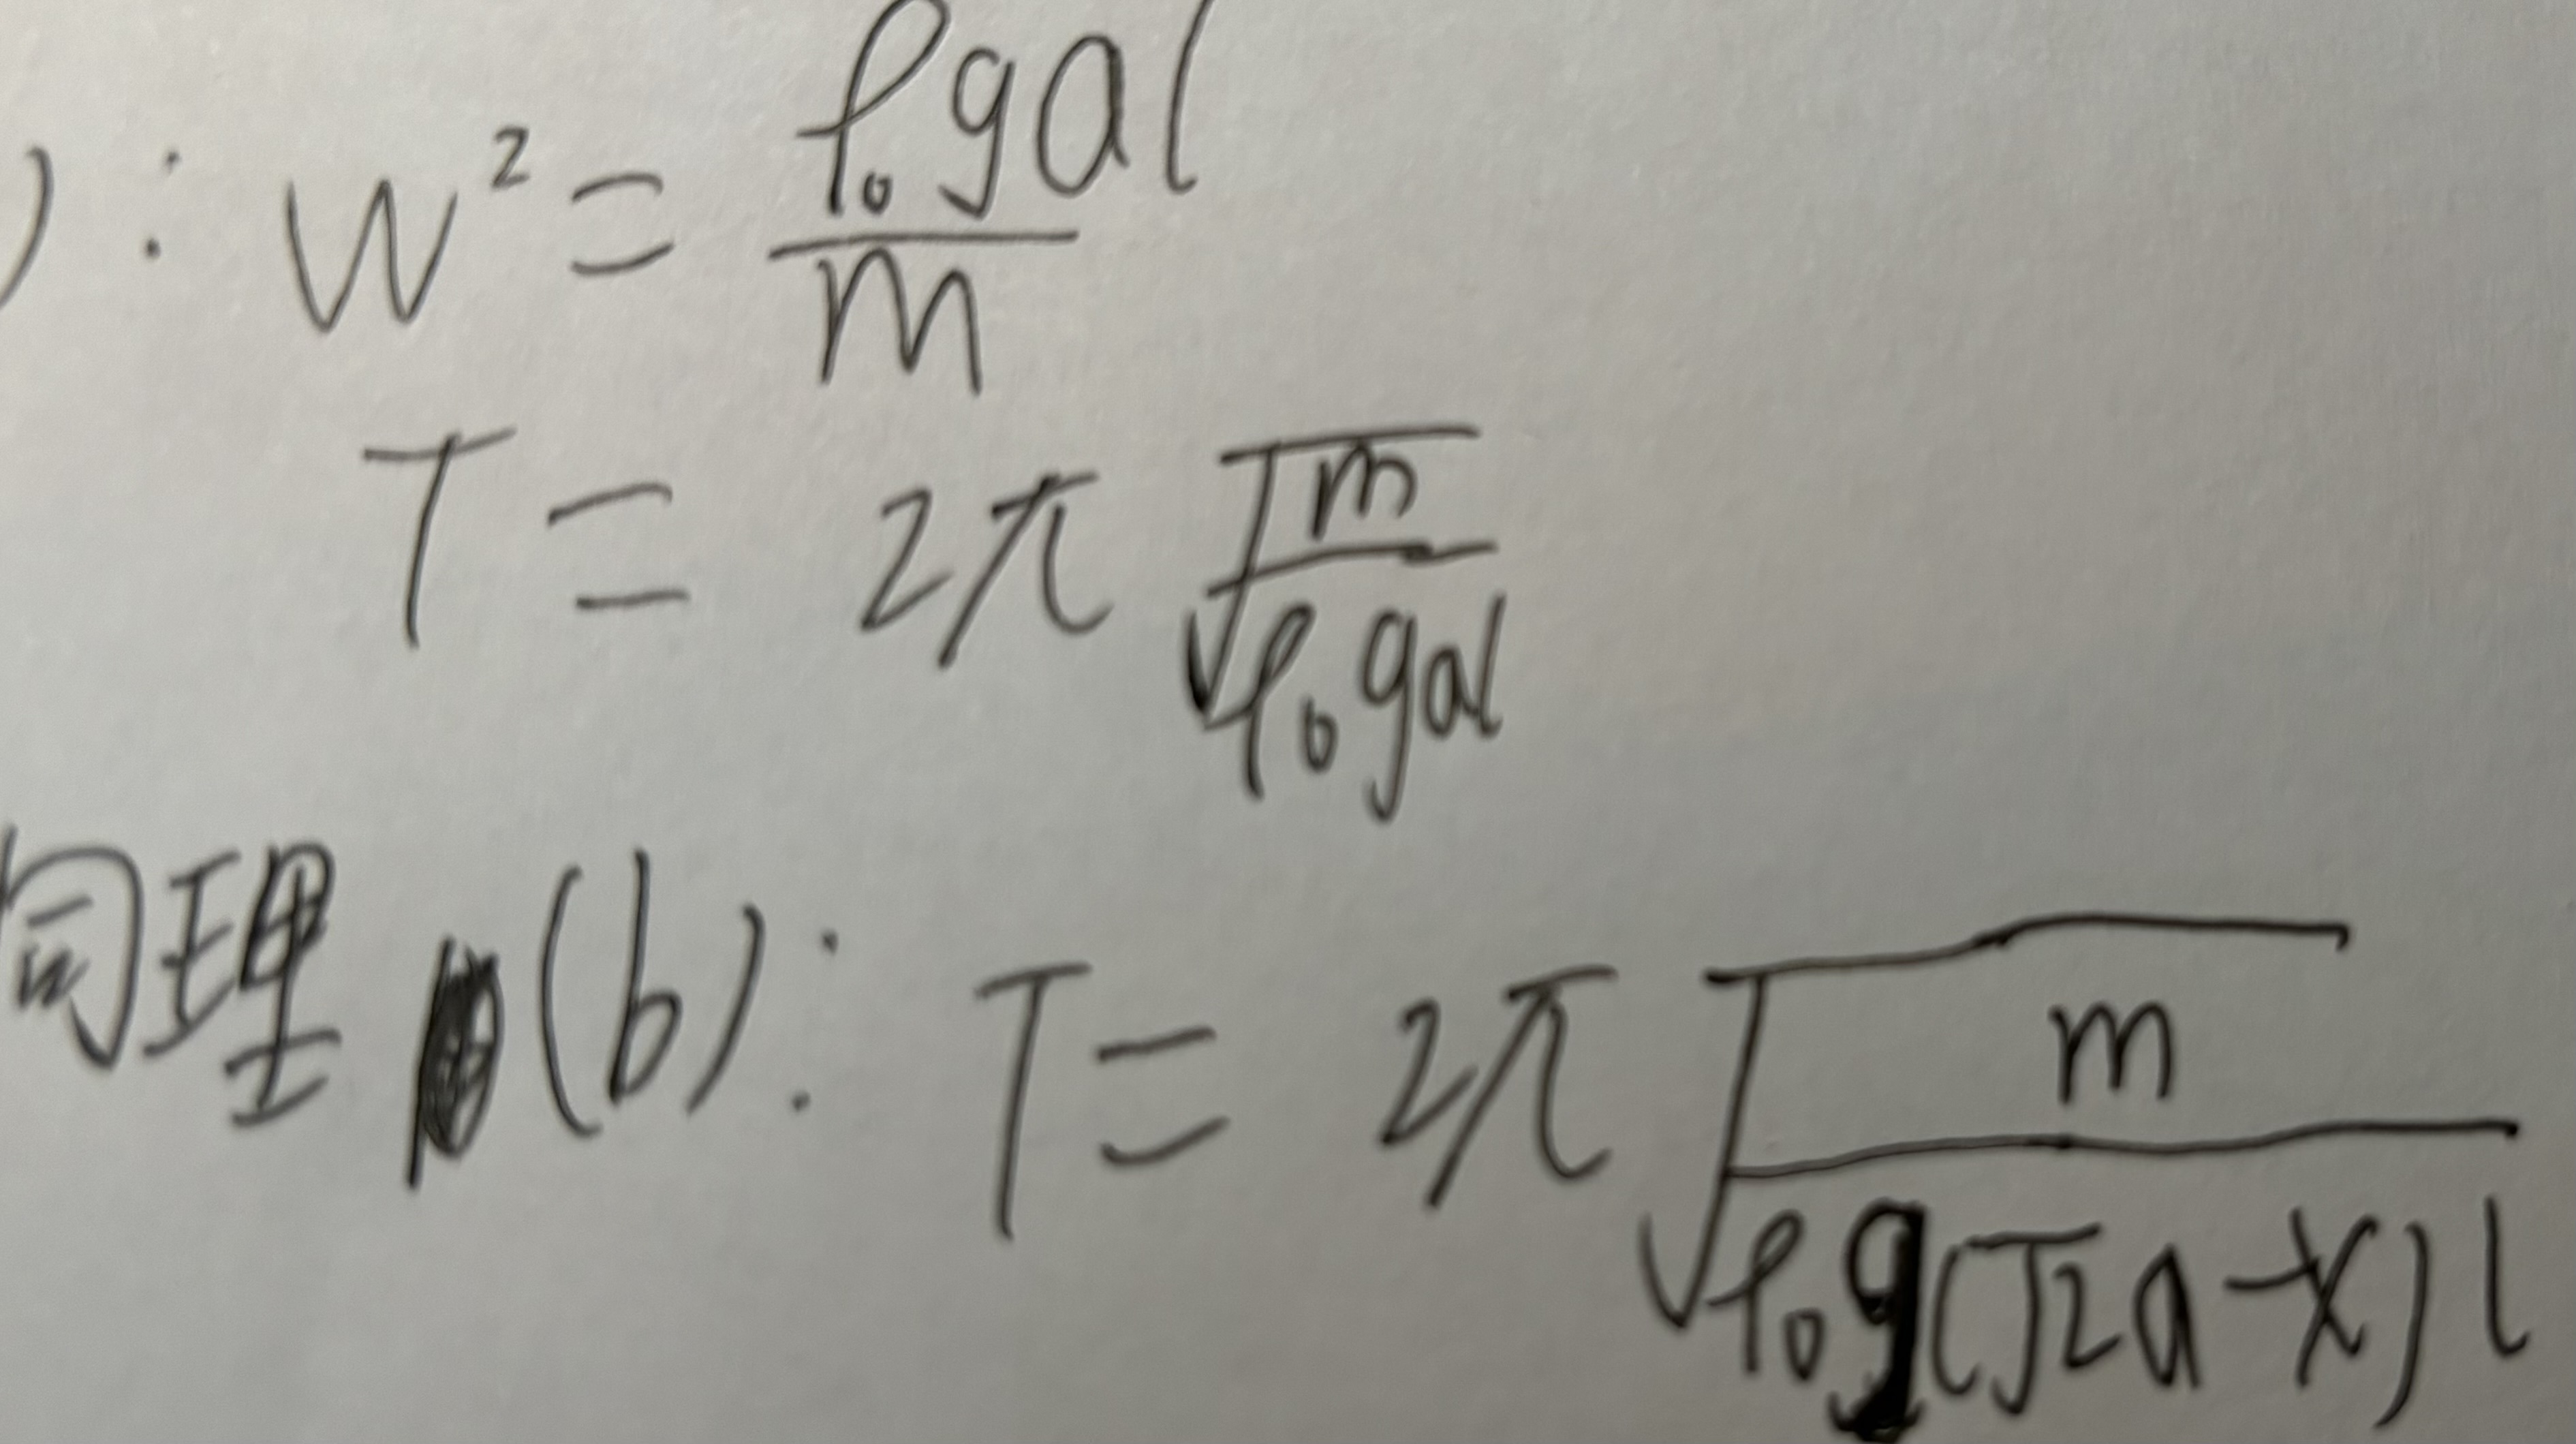 ): W² = ρ₀gal / m
T = 2π √(m / ρ₀gal)
同理 (b): T = 2π √(m / ρ₀g(√2a-x)l)